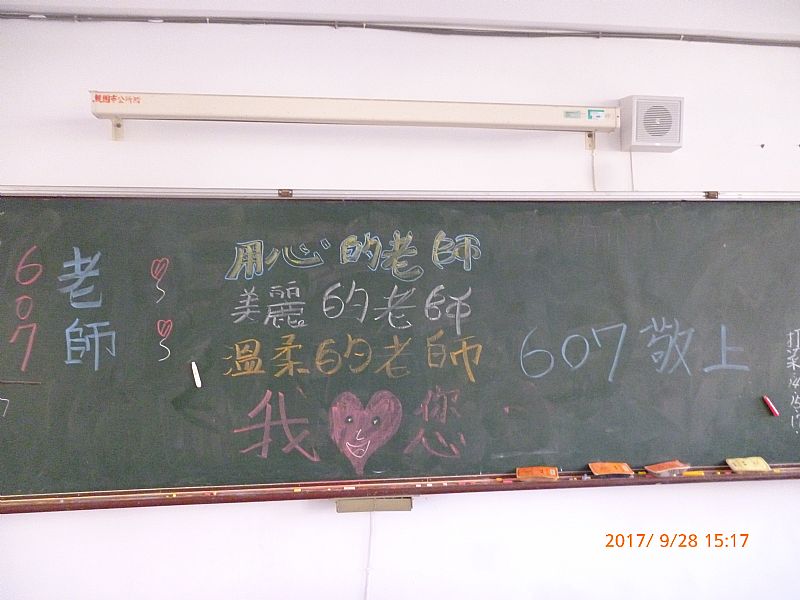 607
老師
用心的老師
美麗的老師
溫柔的老師
我 您
607敬上
2017/ 9/28 15:17